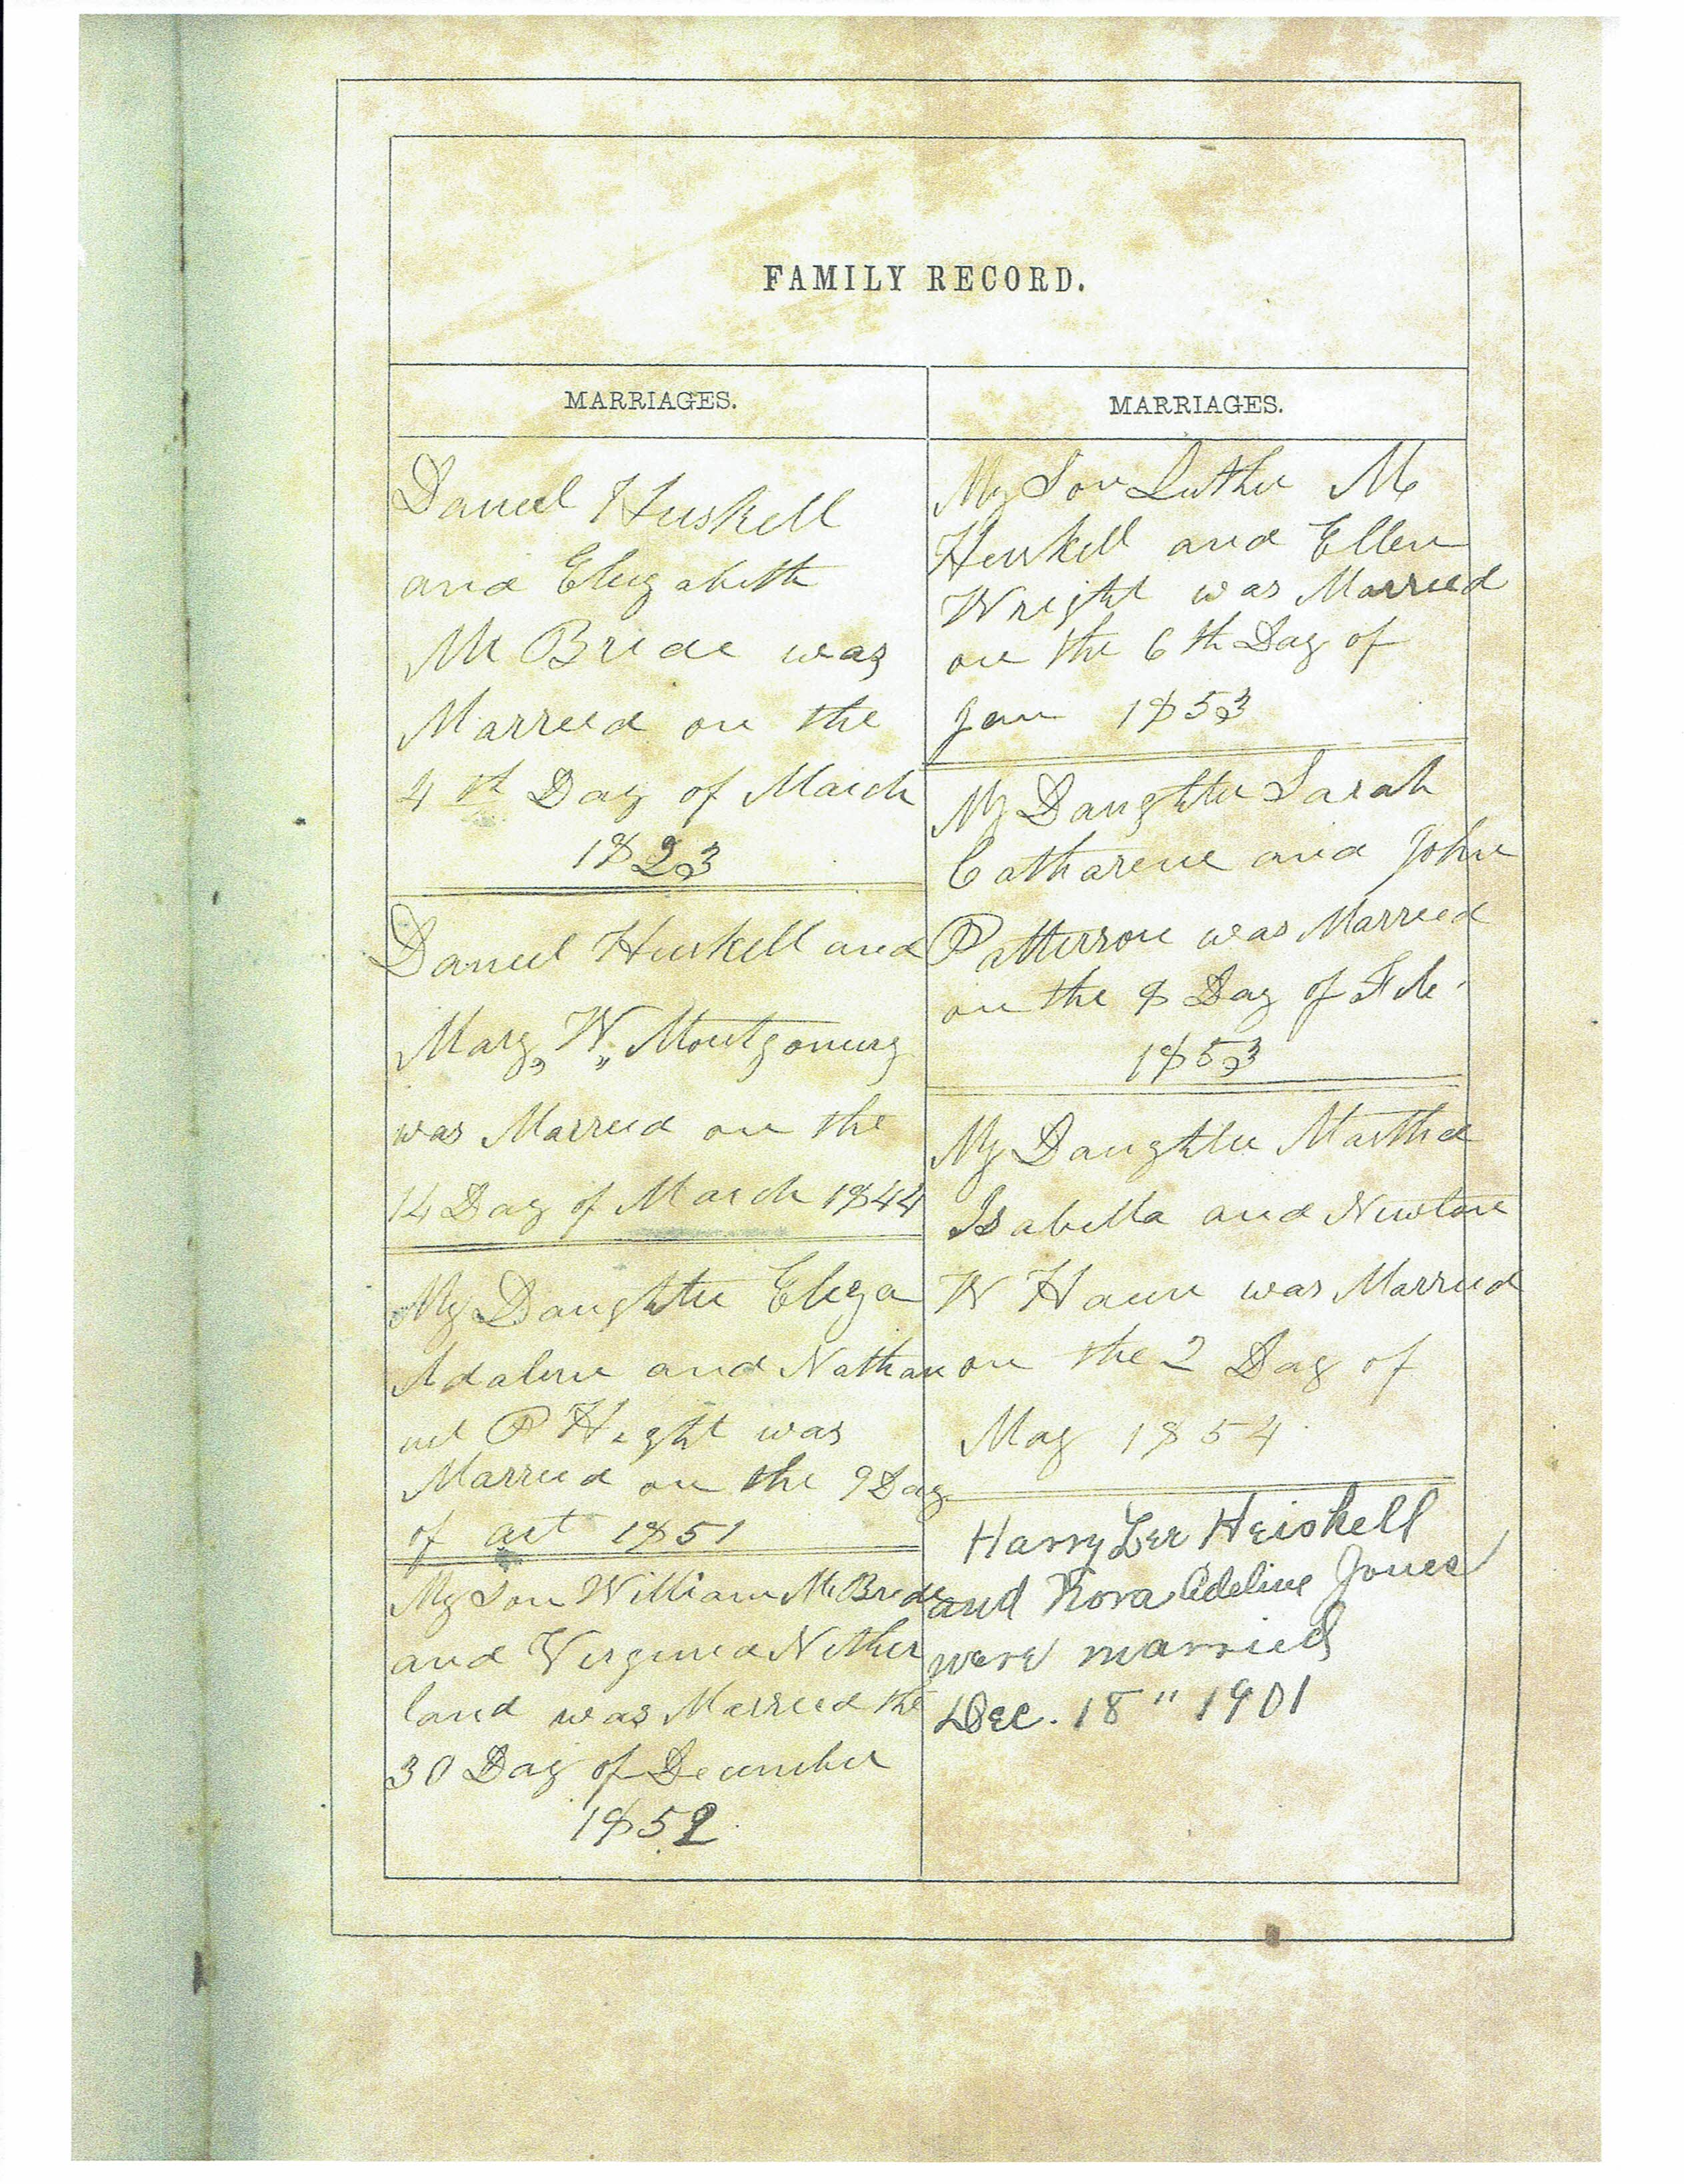 FAMILY RECORD.
MARRIAGES.
Daniel Heiskell
and Elizabeth
Mc Bride was
Married on the
4th Day of March
1823
Daniel Heiskell and
Mary, W, Montgomery
was Married on the
14 Day of March 1844
My Daughter Eliza
Adaline and Nathan
iel P Hight was
Married on the 9 Day
of oct 1851
My Son William McBride
and Virginia Nether
land was Married the
30 Day of December
1852
MARRIAGES.
My Son Luther M
Heiskell and Ellen
Wright was Married
on the 6th Day of
Jan 1853
My Daughter Sarah
Catharine and John
Patterson was Married
on the 8 Day of Feb.
1853
My Daughter Martha
Isabella and Newton
W Haun was Married
on the 2 Day of
May 1854
Harry Lee Heiskell
and Rova Adeline Jones
were married
Dec. 18" 1901